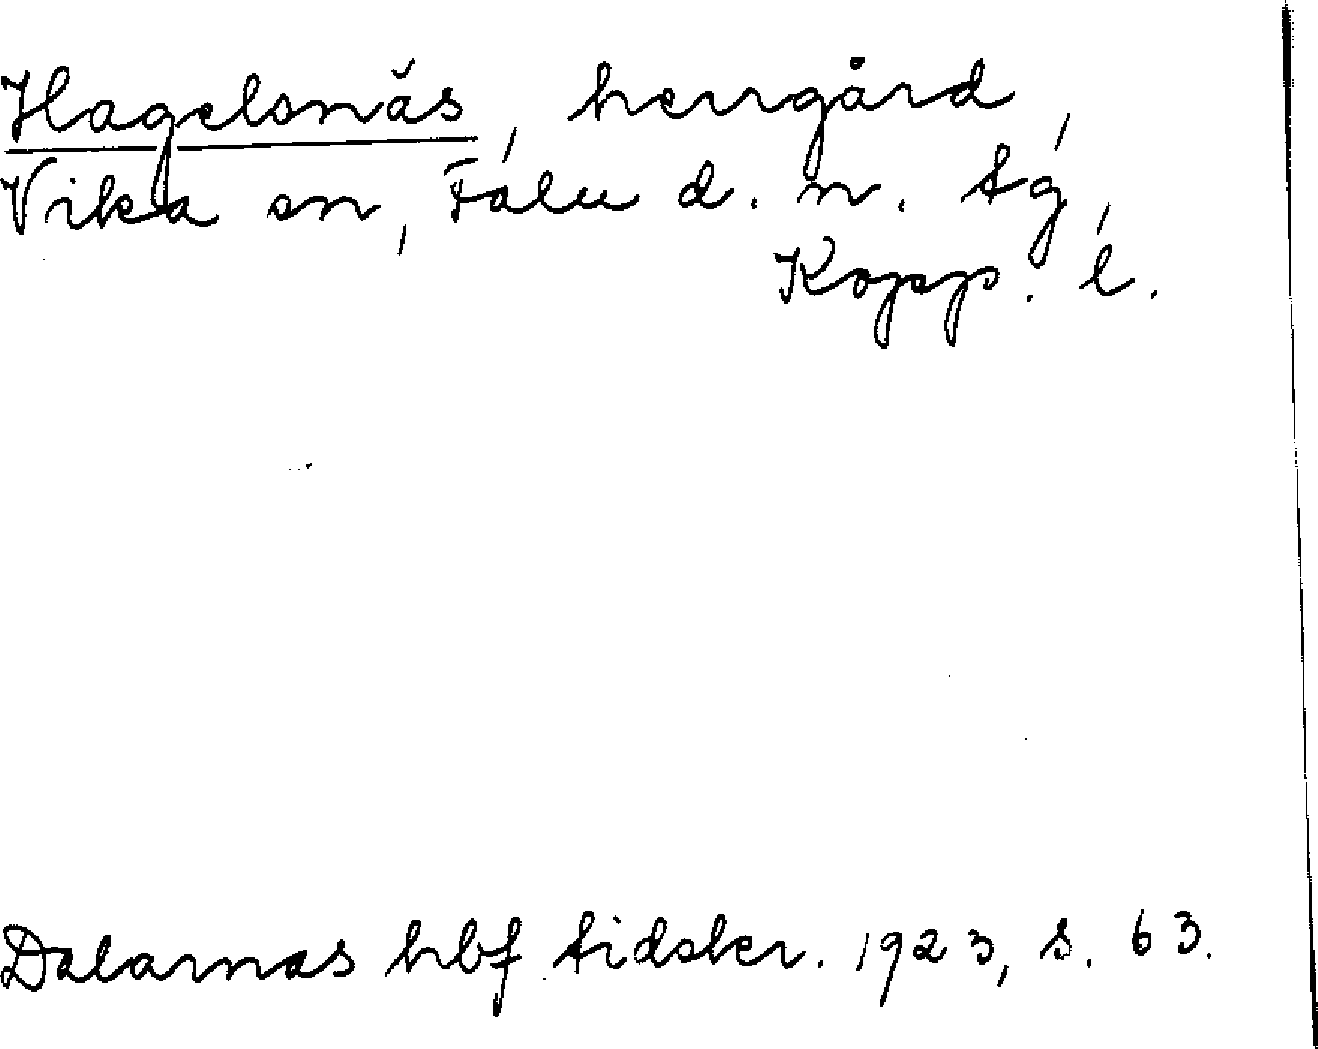 Hagelsnäs, herrgård,
Vika sn, Falu d. n. tg,
Kopp. l.
Dalarnas hbf tidskr. 1923, s. 63.